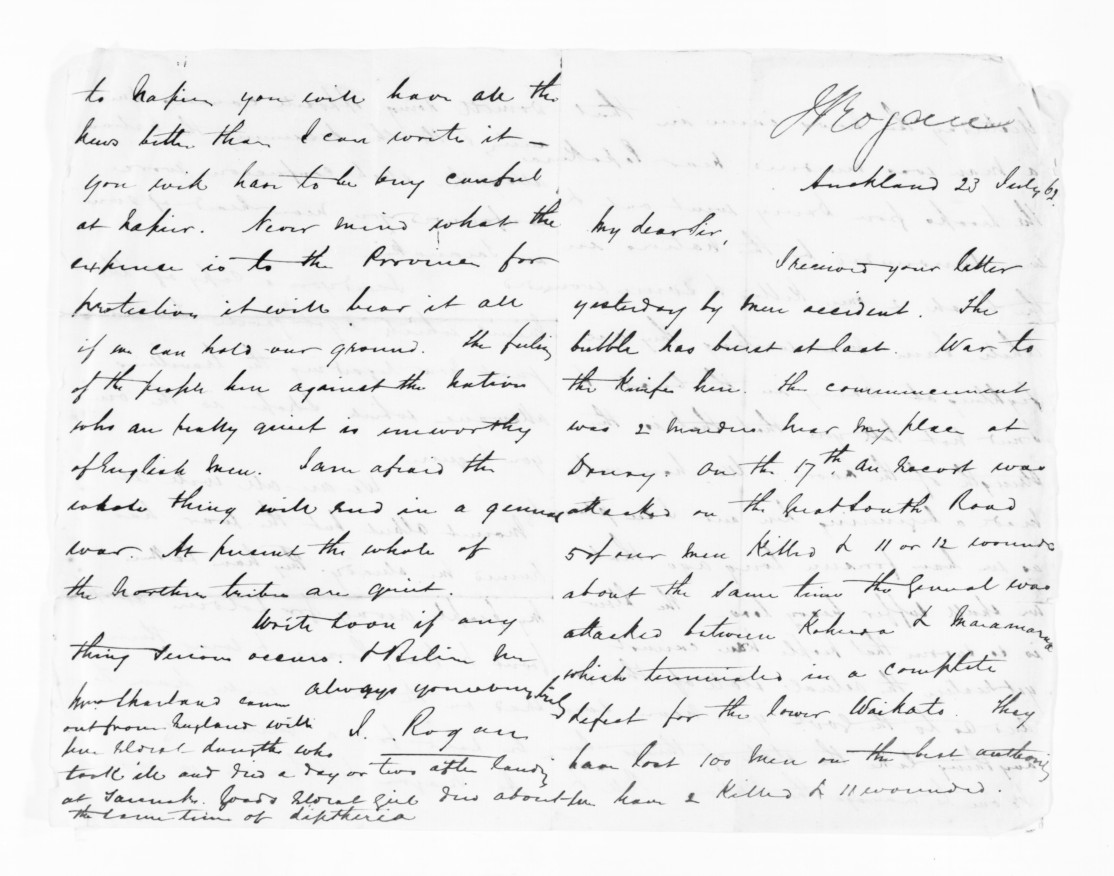 J Rogan
Auckland 23 July 63
My dear Sir,
I received your letter
yesterday by mere accident. The
bubble has burst at last. War to
the Knife here. The commencement
was 2 murders near my place at
Drury. On the 17th. an Escort was
attacked on the Great South Road
5 of our men Killed & 11 or 12 wounded
about the same time the General was
attacked between Koheroa & Maramarua
which terminated in a complete
defeat for the lower Waikato. They
have lost 100 men on the best authority
we have 2 Killed & 11 wounded.
to Napier you will have all the
news better than I can write it –
you will have to be very careful
at Napier. Never mind what the
expense is to the Province for
protection it will bear it all
if we can hold our ground. The feeling
of the people here against the Natives
who are really quiet is unworthy
of English men. I am afraid the
whole thing will end in a general
war. At present the whole of
the Northern tribes are quiet.
Write soon if any
thing serious occurs. & Believe me
always yours very truly
J. Rogan
Mrs Sharland came
out from England with
her Eldest daughter who
took ill and died a day or two after landing
at Taranaki. Goads Eldest Girl died about
the same time of diptheria